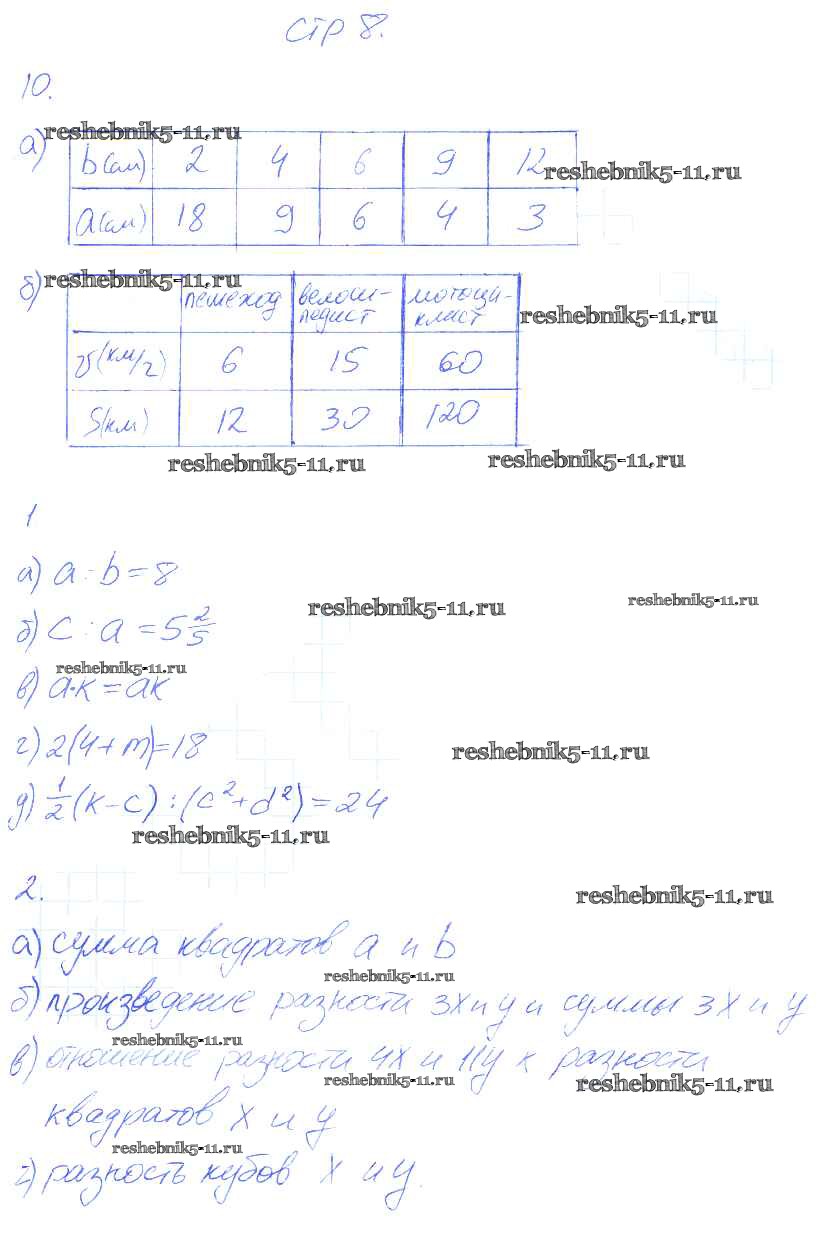 стр 8.
10.
а)
reshebnik5-11.ru
b(см) 2 4 6 9 12
reshebnik5-11.ru
a(см) 18 9 6 4 3
б)
reshebnik5-11.ru
пешеход велоси-педист мотоци-клист
reshebnik5-11.ru
v(км/ч) 6 15 60
S(км) 12 30 120
reshebnik5-11.ru reshebnik5-11.ru
1
а) a - b = 8
reshebnik5-11.ru reshebnik5-11.ru
б) c : a = 5 2/5
reshebnik5-11.ru
в) a·k = ak
г) 2(4+m)=18
reshebnik5-11.ru
д) 1/2(k-c) : (c²+d²)=24
reshebnik5-11.ru
2.
reshebnik5-11.ru
а) сумма квадратов a и b
reshebnik5-11.ru
б) произведение разности 3x и y и суммы 3x и y
reshebnik5-11.ru
в) отношение разности 4x и 11y к разности
reshebnik5-11.ru reshebnik5-11.ru
квадратов x и y
reshebnik5-11.ru
г) разность кубов x и y.